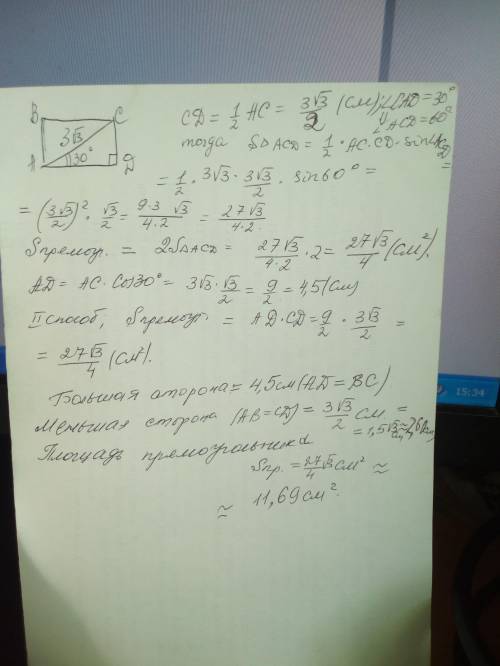 B C
3√3
A 30° D
CD = 1/2 AC = 3√3/2 (см); ∠CAD = 30°
∠ACD = 60°
тогда S△ACD = 1/2 · AC · CD · sin∠ACD =
= 1/2 · 3√3 · 3√3/2 · sin 60° =
= (3√3/2)² · √3/2 = 9·3·√3/4·2 = 27√3/4·2
Sпрямоуг. = 2S△ACD = 27√3/4·2 · 2 = 27√3/4 (см²).
AD = AC · Cos30° = 3√3 · √3/2 = 9/2 = 4,5 (см)
II способ, Sпрямоуг. = AD · CD = 9/2 · 3√3/2 =
= 27√3/4 (см²).
Большая сторона = 4,5 см (AD = BC)
Меньшая сторона (AB = CD) = 3√3/2 см =
= 1,5√3 см ≈ 2,6 см
Площадь прямоугольника
Sпр. = 27/4 √3 см² ≈
≈ 11,69 см².
15:34